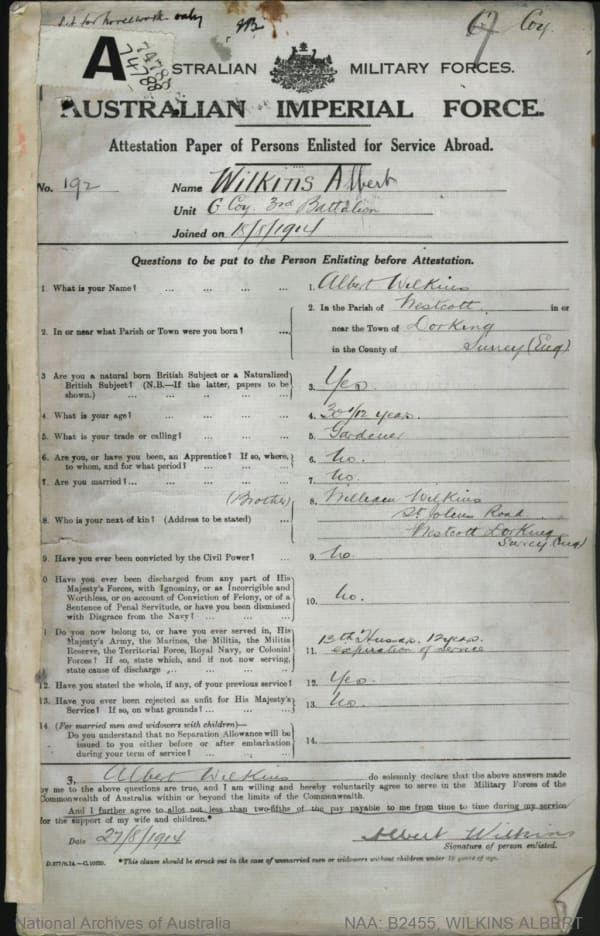 Fit for homework only
Coy.
A 74788
74788
STRALIAN MILITARY FORCES.
AUSTRALIAN IMPERIAL FORCE.
Attestation Paper of Persons Enlisted for Service Abroad.
No. 192 Name Wilkins Albert
Unit G Coy. 3rd Battalion
Joined on 18/8/1914
Questions to be put to the Person Enlisting before Attestation.
1 What is your Name? ... ... ... ... 1. Albert Wilkins
2. In or near what Parish or Town were you born? ... 2. In the Parish of Westcott in or
near the Town of Dorking
in the County of Surrey (Eng)
3 Are you a natural born British Subject or a Naturalized
British Subject? (N.B.—If the latter, papers to be
shown.) ... ... ... ... 3. Yes.
4. What is your age? ... ... ... ... 4. 30 /12 years.
5. What is your trade or calling? ... ... ... 5. Gardener
6. Are you, or have you been, an Apprentice? If so, where,
to whom, and for what period? ... ... ... 6. No.
7. Are you married? ... ... ... ... 7. No.
(Brother)
8. Who is your next of kin? (Address to be stated) ... 8. William Wilkins
St Johns Road
Westcott Dorking
Surrey (Eng)
9. Have you ever been convicted by the Civil Power? ... 9. No.
0 Have you ever been discharged from any part of His
Majesty's Forces, with Ignominy, or as Incorrigible and
Worthless, or on account of Conviction of Felony, or of a
Sentence of Penal Servitude, or have you been dismissed
with Disgrace from the Navy? ... ... 10. No.
1 Do you now belong to, or have you ever served in, His
Majesty's Army, the Marines, the Militia, the Militia
Reserve, the Territorial Force, Royal Navy, or Colonial
Forces? If so, state which, and if not now serving,
state cause of discharge ... ... ... 11. 13th Hussars. 12 years.
expiration of service
12. Have you stated the whole, if any, of your previous service? 12. Yes.
13. Have you ever been rejected as unfit for His Majesty's
Service? If so, on what grounds? ... ... ... 13. No.
14. (For married men and widowers with children)—
Do you understand that no Separation Allowance will be
issued to you either before or after embarkation
during your term of service? ... ... ... 14.
I, Albert Wilkins do solemnly declare that the above answers made
by me to the above questions are true, and I am willing and hereby voluntarily agree to serve in the Military Forces of the
Commonwealth of Australia within or beyond the limits of the Commonwealth.
And I further agree to allot not less than two-fifths of the pay payable to me from time to time during my service
for the support of my wife and children.*
Date 27/8/1914 Albert Wilkins
Signature of person enlisted.
D.877/8.14.—C.10920. *This clause should be struck out in the case of unmarried men or widowers without children under 18 years of age.
National Archives of Australia NAA: B2455, WILKINS ALBERT